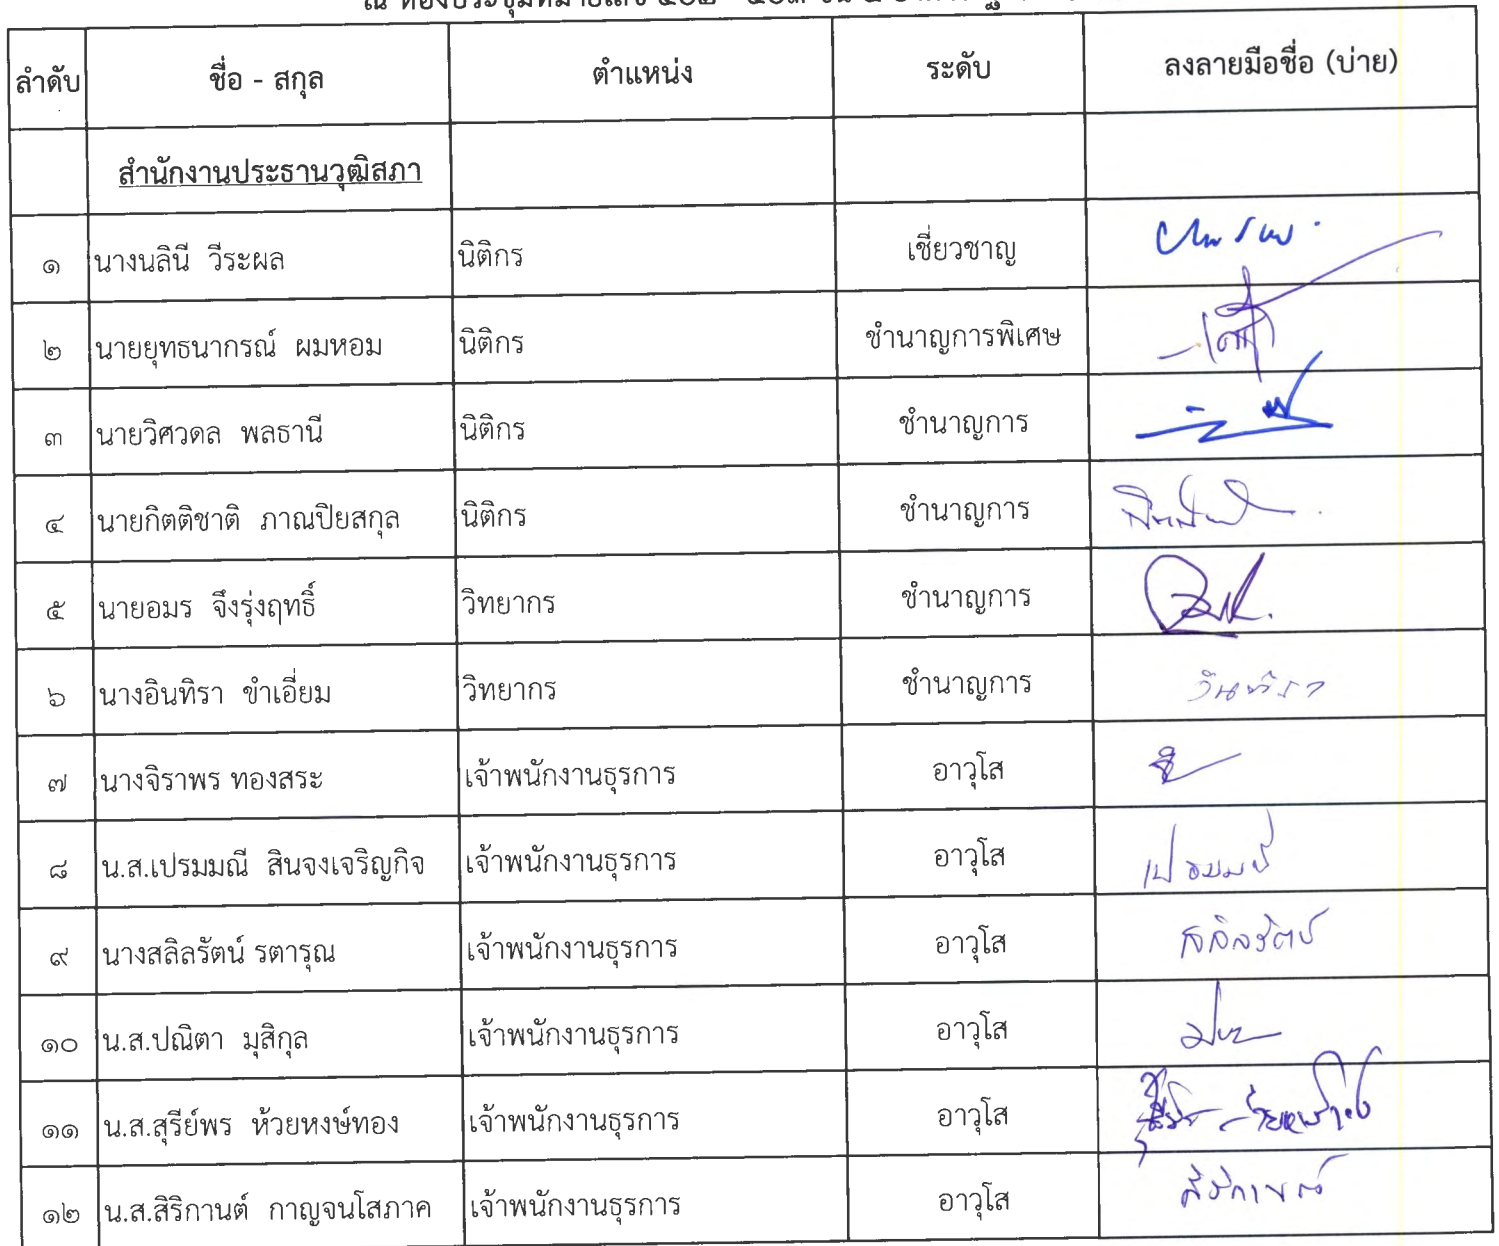 ลำดับ ชื่อ - สกุล ตำแหน่ง ระดับ ลงลายมือชื่อ (บ่าย)
สำนักงานประธานวุฒิสภา
๑ นางนลินี วีระผล นิติกร เชี่ยวชาญ
๒ นายยุทธนากรณ์ ผมหอม นิติกร ชำนาญการพิเศษ
๓ นายวิศวดล พลธานี นิติกร ชำนาญการ
๔ นายกิตติชาติ ภาณปิยสกุล นิติกร ชำนาญการ
๕ นายอมร จึงรุ่งฤทธิ์ วิทยากร ชำนาญการ
๖ นางอินทิรา ขำเอี่ยม วิทยากร ชำนาญการ อินทิรา
๗ นางจิราพร ทองสระ เจ้าพนักงานธุรการ อาวุโส
๘ น.ส.เปรมมณี สินจงเจริญกิจ เจ้าพนักงานธุรการ อาวุโส เปรมมณี
๙ นางสลิลรัตน์ รตารุณ เจ้าพนักงานธุรการ อาวุโส สลิลรัตน์
๑๐ น.ส.ปณิตา มุสิกุล เจ้าพนักงานธุรการ อาวุโส
๑๑ น.ส.สุรีย์พร ห้วยหงษ์ทอง เจ้าพนักงานธุรการ อาวุโส
๑๒ น.ส.สิริกานต์ กาญจนโสภาค เจ้าพนักงานธุรการ อาวุโส สิริกานต์